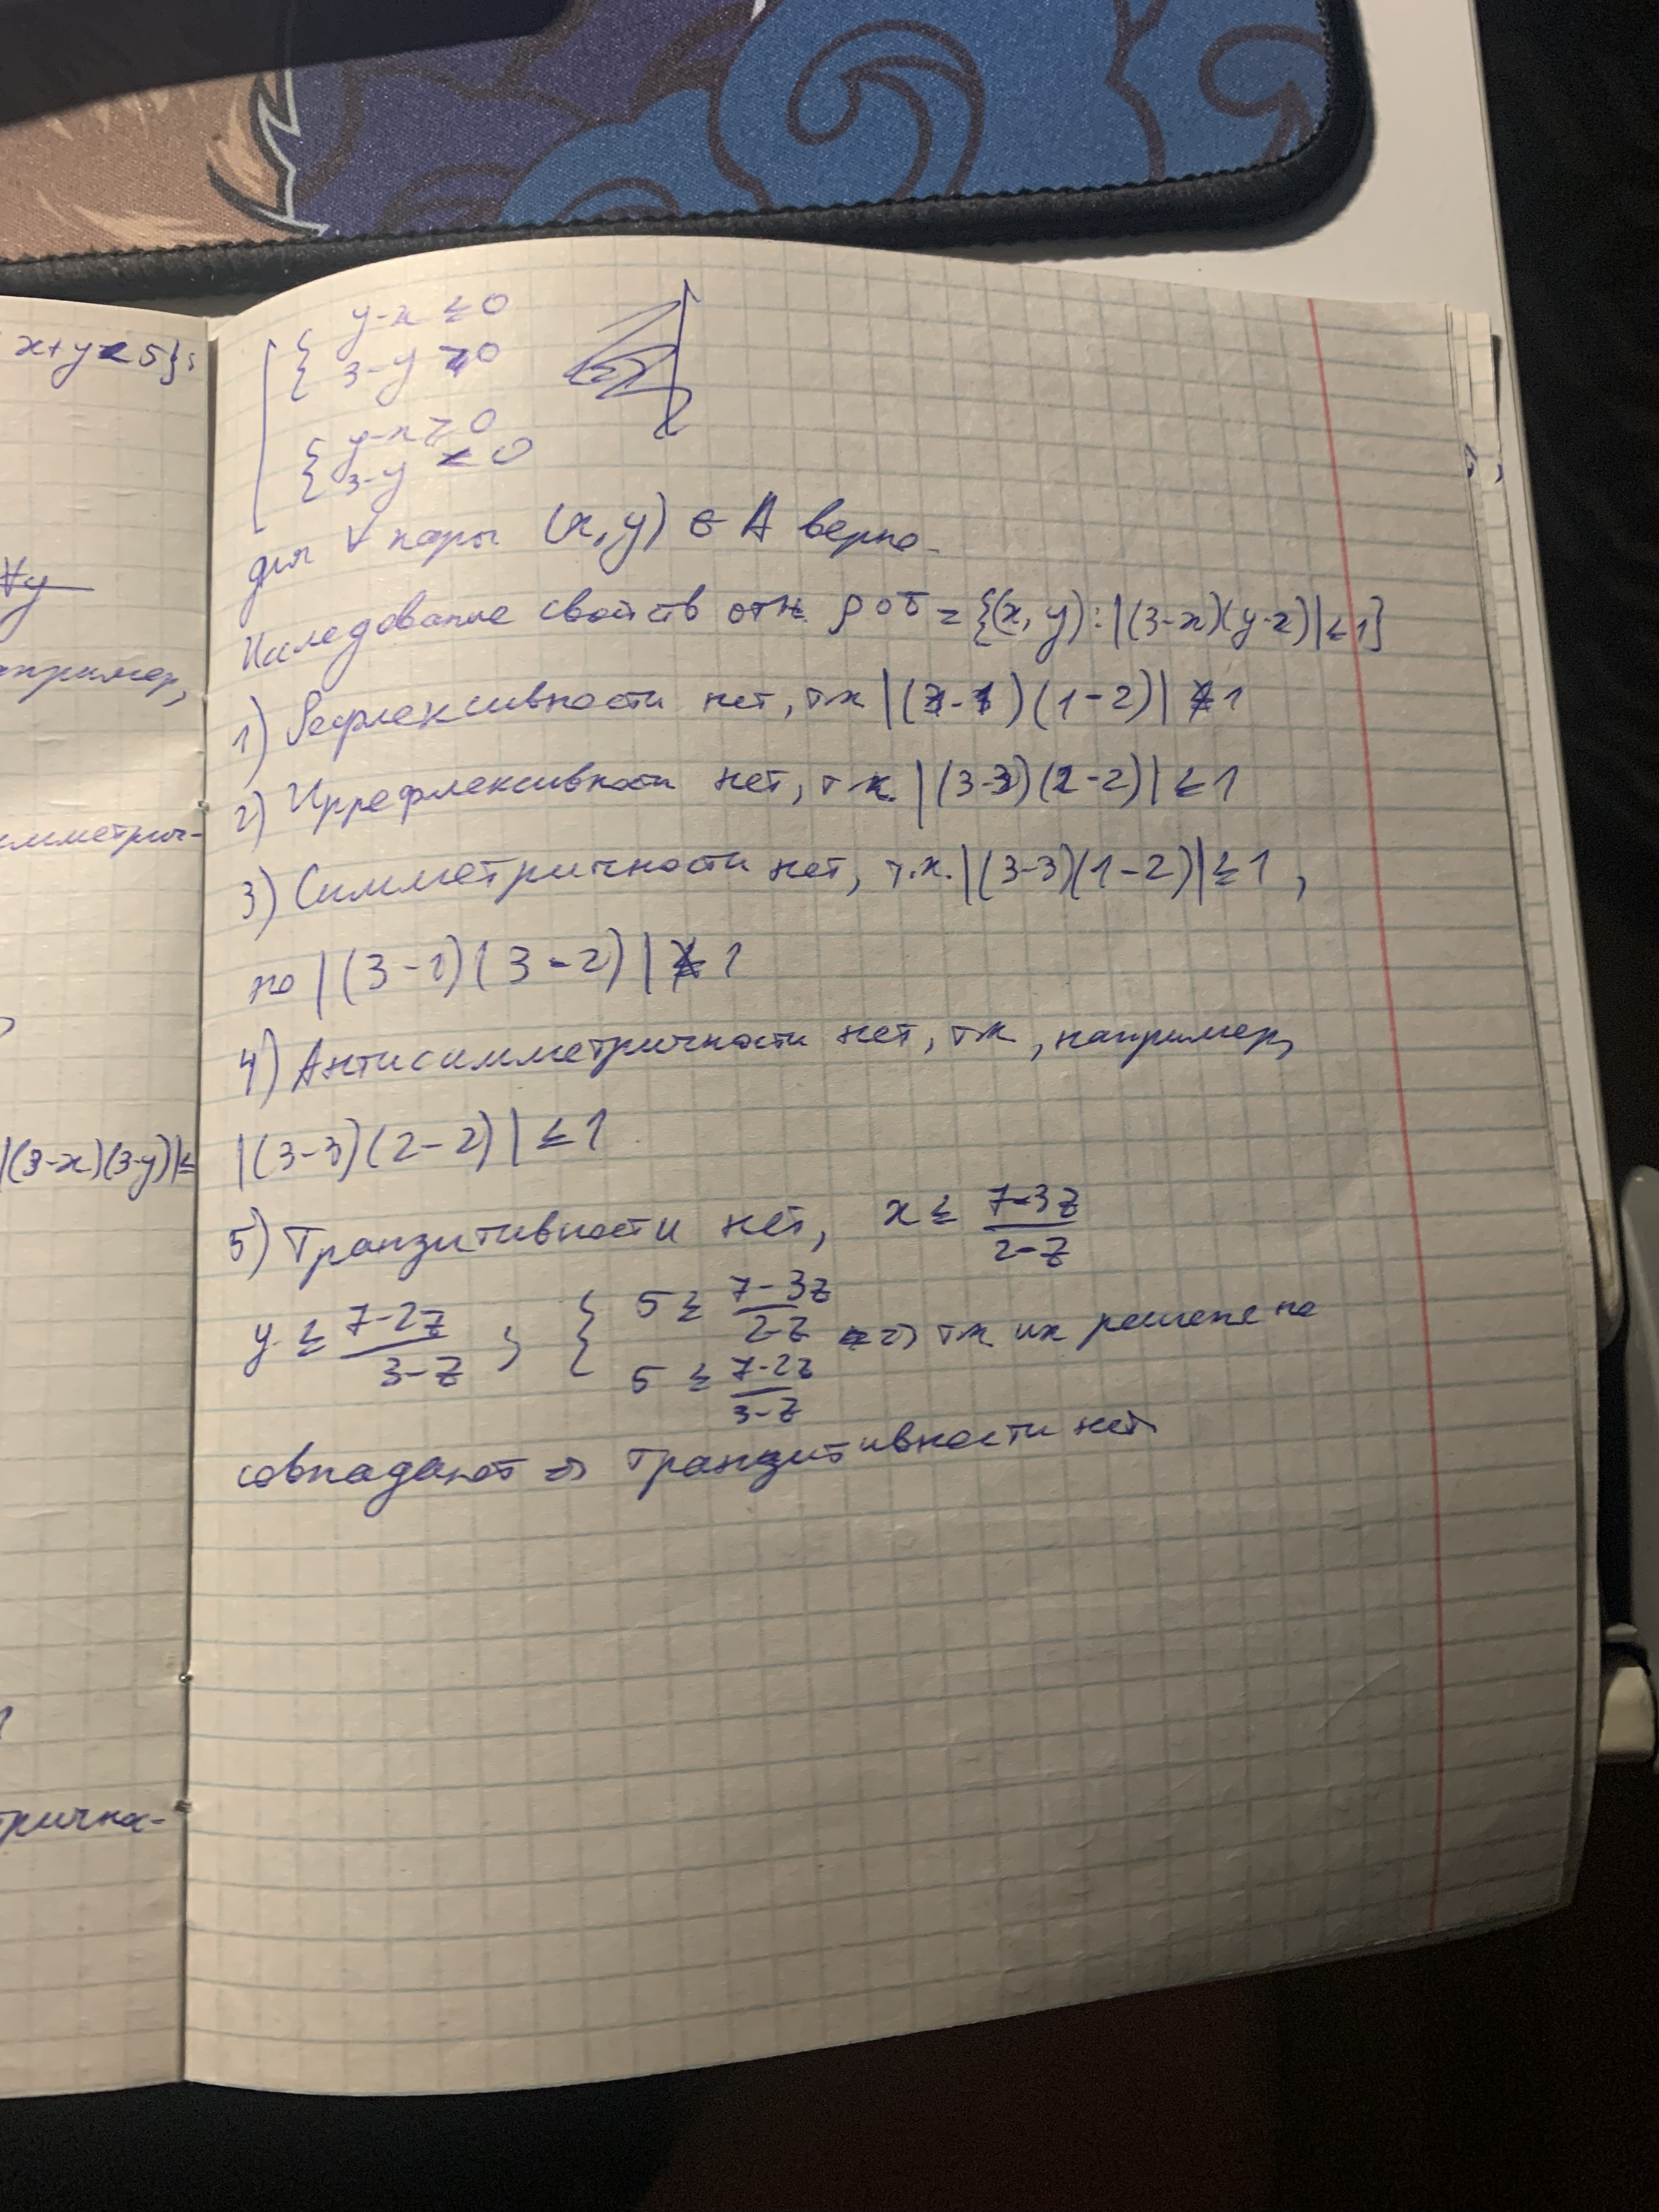 x+y<5};
∀y
например,
симметрич-
|(3-x)(3-y)|≤
трична-
y-x ≤ 0
3-y > 0
y-x ≥ 0
3-y < 0
для ∀ пары (x,y) ∈ A верно.
Исследование свойств отн. ρ∘σ = {(x, y): |(3-x)(y-2)| ≤ 1}
1) Рефлексивности нет, тк (1-2)| ≰ 1
2) Иррефлексивности нет, т.к. |(3-3)(2-2)| ≤ 1
3) Симметричности нет, т.к. |(3-3)(1-2)| ≤ 1,
но |(3-1)(3-2)| ≰ 1
4) Антисимметричности нет, тк, например,
|(3-3)(2-2)| ≤ 1
5) Транзитивности нет, x ≤ (7-3z)/(2-z)
y ≤ (7-2z)/(3-z) ; { 5 ≤ (7-3z)/(2-z) => тк их решене не
5 ≤ (7-2z)/(3-z)
совпадают => транзитивности нет